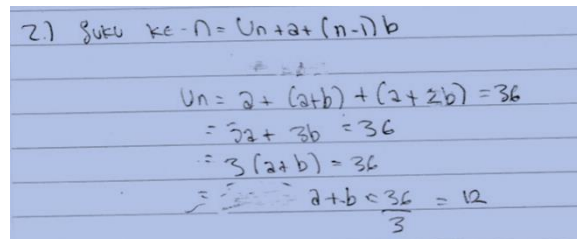 2.) Suku ke-n = Un + a + (n-1)b
Un = a + (a+b) + (a+2b) = 36
= 3a + 3b = 36
= 3(a+b) = 36
= a+b = 36/3 = 12